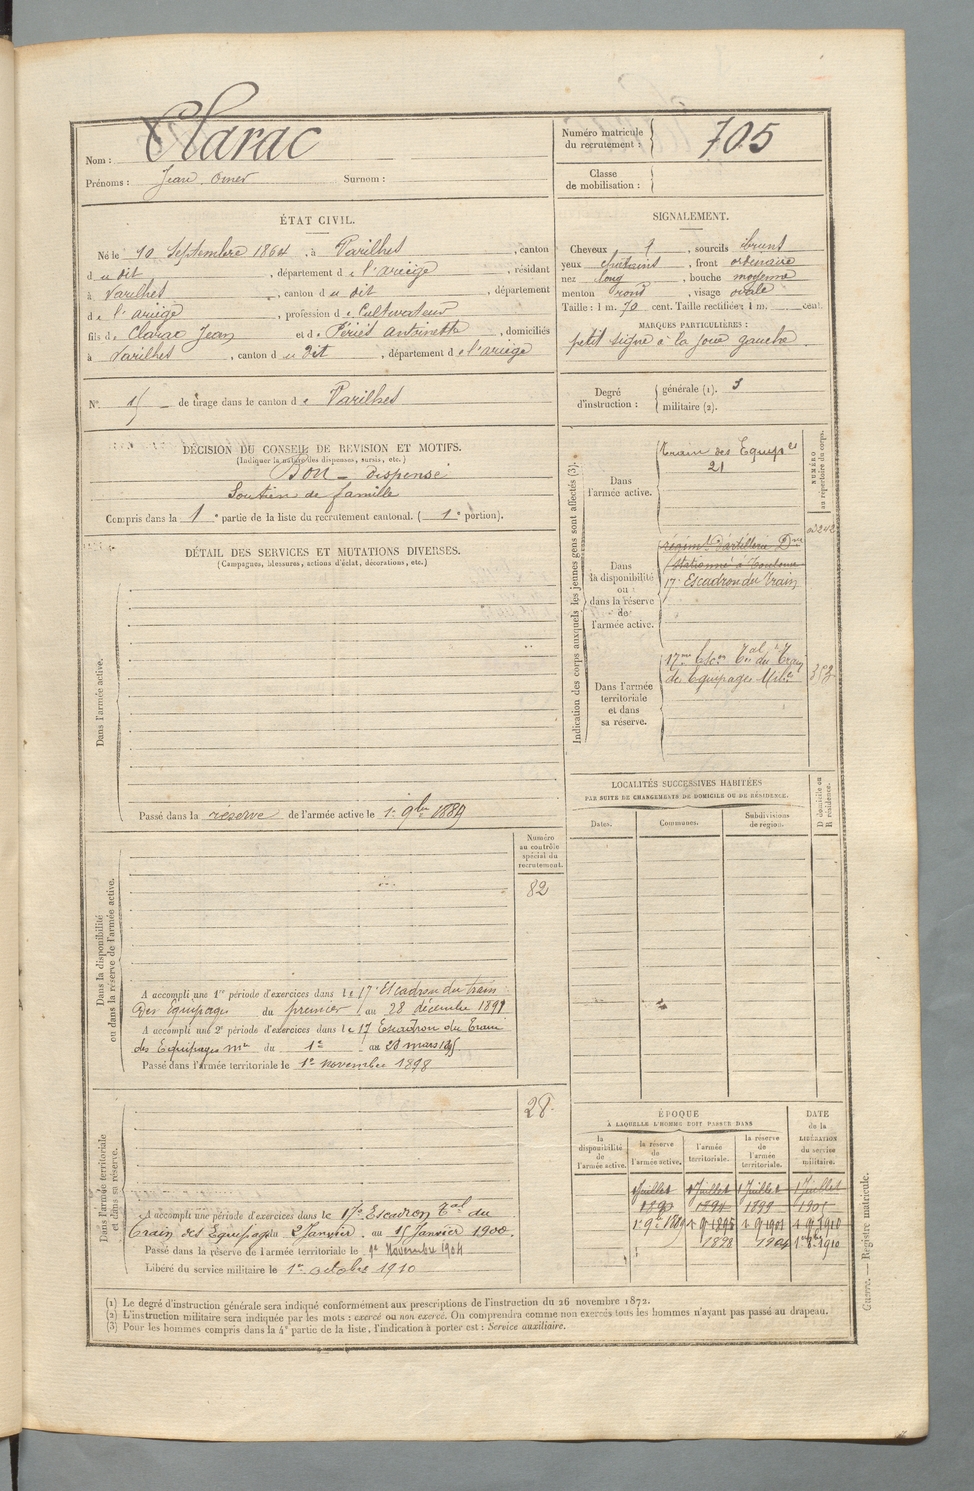 Nom : Clarac
Prénoms : Jean Omer Surnom :
Numéro matricule
du recrutement : 705
Classe
de mobilisation :
ÉTAT CIVIL.
Né le 10 Septembre 1864, à Varilhes, canton
du dit, département de l'ariège, résidant
à Varilhes, canton du dit, département
de l'ariège, profession de Cultivateur
fils de Clarac Jean et de Antoinette, domiciliés
à Varilhes, canton du dit, département de l'ariège
SIGNALEMENT.
Cheveux, sourcils bruns
yeux chatains, front ordinaire
nez long, bouche moyenne
menton rond, visage ovale
Taille : 1 m. 70 cent. Taille rectifiée : 1 m. cent.
MARQUES PARTICULIÈRES :
petit signe à la joue gauche.
N° 15 de tirage dans le canton de Varilhes
Degré
d'instruction :
générale (1). 3
militaire (2).
DÉCISION DU CONSEIL DE REVISION ET MOTIFS.
(Indiquer la nature des dispenses, sursis, etc.)
Bon - dispensé
Soutien de famille
Compris dans la 1e partie de la liste du recrutement cantonal. (1e portion).
DÉTAIL DES SERVICES ET MUTATIONS DIVERSES.
(Campagnes, blessures, actions d'éclat, décorations, etc.)
Dans l'armée active.
Passé dans la réserve de l'armée active le 1er 9bre 1889
Indication des corps auxquels les jeunes gens sont affectés (3).
NUMÉRO
au répertoire du corps.
Dans
l'armée active.
Train des Equip.es
21
Dans
la disponibilité
ou
dans la réserve
de
l'armée active.
régimt d'artillerie Don
Stationné à Toulouse
17e Escadron du Train
Dans l'armée
territoriale
et dans
sa réserve.
17me Escon Tal du Train
des Equipages Mil.res
LOCALITÉS SUCCESSIVES HABITÉES
PAR SUITE DE CHANGEMENTS DE DOMICILE OU DE RÉSIDENCE.
Dates.
Communes.
Subdivisions
de région.
D domicile ou
R résidence.
Dans la disponibilité
ou dans la réserve de l'armée active.
Numéro
au contrôle
spécial du
recrutement.
82
A accompli une 1re période d'exercices dans le 17e Escadron du train
des Equipages du premier au 28 décembre 1891
A accompli une 2e période d'exercices dans le 17 Escadron du Train
des Equipages mres du 1er au 28 mars 1895
Passé dans l'armée territoriale le 1er novembre 1898
Dans l'armée territoriale
et dans sa réserve.
28
A accompli une période d'exercices dans le 17e Escadron Tal du
Train des Equipages du 2 Janvier au 15 Janvier 1900.
Passé dans la réserve de l'armée territoriale le 1er Novembre 1904
Libéré du service militaire le 1er octobre 1910
ÉPOQUE
À LAQUELLE L'HOMME DOIT PASSER DANS
DATE
de la
LIBÉRATION
du service
militaire.
la
disponibilité
de
l'armée active.
la réserve
de
l'armée active.
l'armée
territoriale.
la réserve
de
l'armée
territoriale.
1 Juillet 1 Juillet 1 Juillet 1 Juillet
1890 1894 1899 1905
1er 9bre 1889
1898 1904
(1) Le degré d'instruction générale sera indiqué conformément aux prescriptions de l'instruction du 26 novembre 1872.
(2) L'instruction militaire sera indiquée par les mots : exercé ou non exercé. On comprendra comme non exercés tous les hommes n'ayant pas passé au drapeau.
(3) Pour les hommes compris dans la 4e partie de la liste, l'indication à porter est : Service auxiliaire.
Guerre. — Registre matricule.